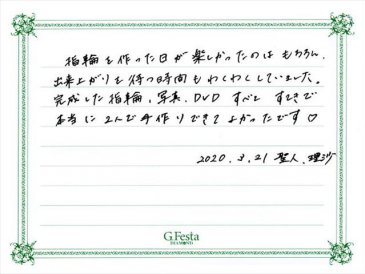 指輪を作った日が楽しかったのはもちろん、
出来上がりを待つ時間もわくわくしていました。
完成した指輪、写真、DVD すべて すてきで
本当に2人で手作りできてよかったです♡
2020.3.21 聖人、理沙
G.Festa
DIAMOND